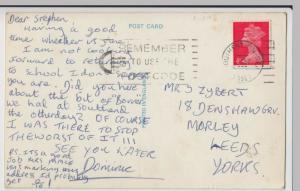 Dear Stephen
Having a good
time whether is fine
I am not looking
forward to returning
to school I don't suppose
you are. Did you hear
about the bit of "Bower"
we had at Southend
the other day? OF COURSE
I WAS THERE TO STOP
THE WORST OF IT!!!
SEE YOU LATER
Dominic
PS. Its a good
Job was
was marking
address Id probably
get
POST CARD
REMEMBER
TO USE THE
POST CODE
MR J ZYBERT
18 DENSHAW GRV.
MORLEY
LEEDS
YORKS.